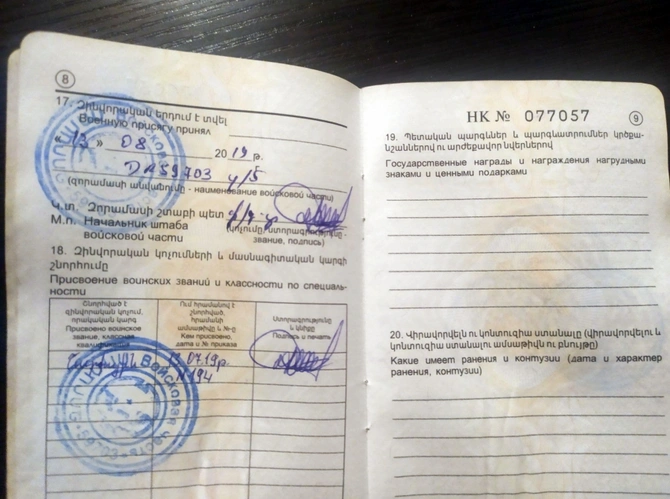 8
17. Զինվորական երդում է տվել
Военную присягу принял
« 13 » 08 2019 թ.
59703
(զորամասի անվանումը - наименование войсковой части)
Կ.տ. Զորամասի շտաբի պետ
М.п. Начальник штаба
войсковой части
(կոչումը, ստորագրությունը -
звание, подпись)
18. Զինվորական կոչումների և մասնագիտական կարգի
շնորհումը
Присвоение воинских званий и классности по специаль-
ности
Շնորհված է
զինվորական կոչում,
որակական կարգ
Присвоено воинское
звание, классная
квалификация
Ում հրամանով է
շնորհված,
հրամանի
ամսաթիվը և №-ը
Кем присвоено,
дата и № приказа
Ստորագրությունը
և կնիքը
Подпись и печать
07.19թ.
N194
Войсковая часть
НК № 077057
9
19. Պետական պարգևներ և պարգևատրումներ կրծքա-
նշաններով ու արժեքավոր նվերներով
Государственные награды и награждения нагрудными
знаками и ценными подарками
20. Վիրավորվելն ու կոնտուզիա ստանալը (վիրավորվելու և
կոնտուզիա ստանալու ամսաթիվն ու բնույթը)
Какие имеет ранения и контузии (дата и характер
ранения, контузии)